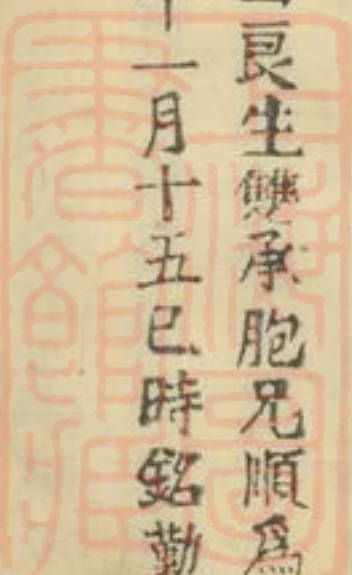 良生雙承胞兄順爲
十一月十五巳時銘勤